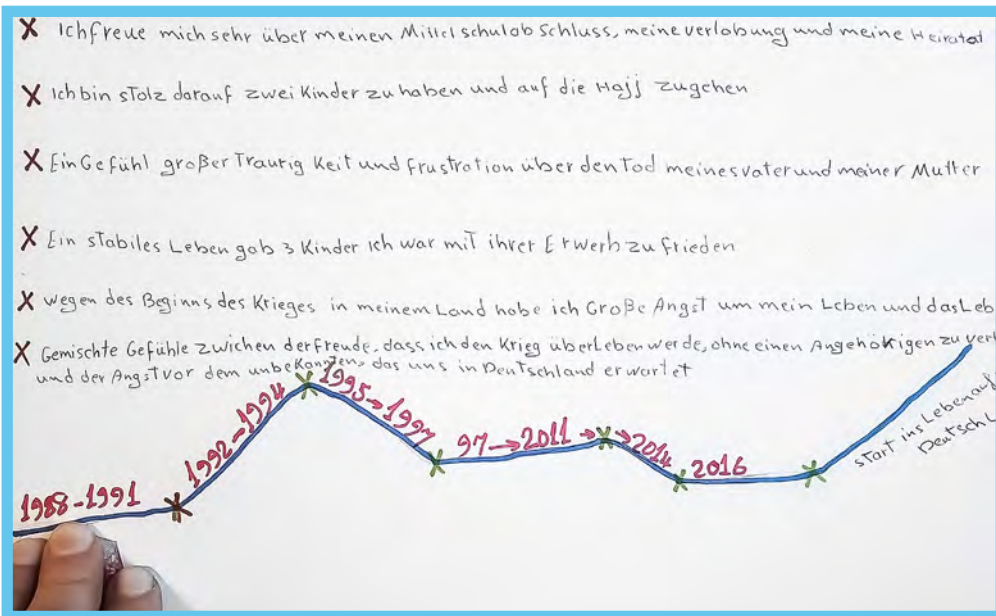 X Ich freue mich sehr über meinen Mittelschulabschluss, meine verlobung und meine Heiratat
X Ich bin stolz darauf zwei Kinder zu haben und auf die Hajj zugehen
X Ein Gefühl großer Traurigkeit und frustration über den Tod meines vater und meiner Mutter
X Ein stabiles Leben gab 3 Kinder Ich war mit ihrer Erwerb zu frieden
X wegen des Beginns des Krieges in meinem Land habe ich Große Angst um mein Leben und das Leb
X Gemischte Gefühle zwichen der freude, dass ich den Krieg überleben werde, ohne einen Angehökigen zu verl
und der Angst vor dem unbekannten, das uns in Deutschland erwartet
1988-1991
1992-1994
1995→1997
97→2011
→2014
2016
start ins Leben auf
Deutschl